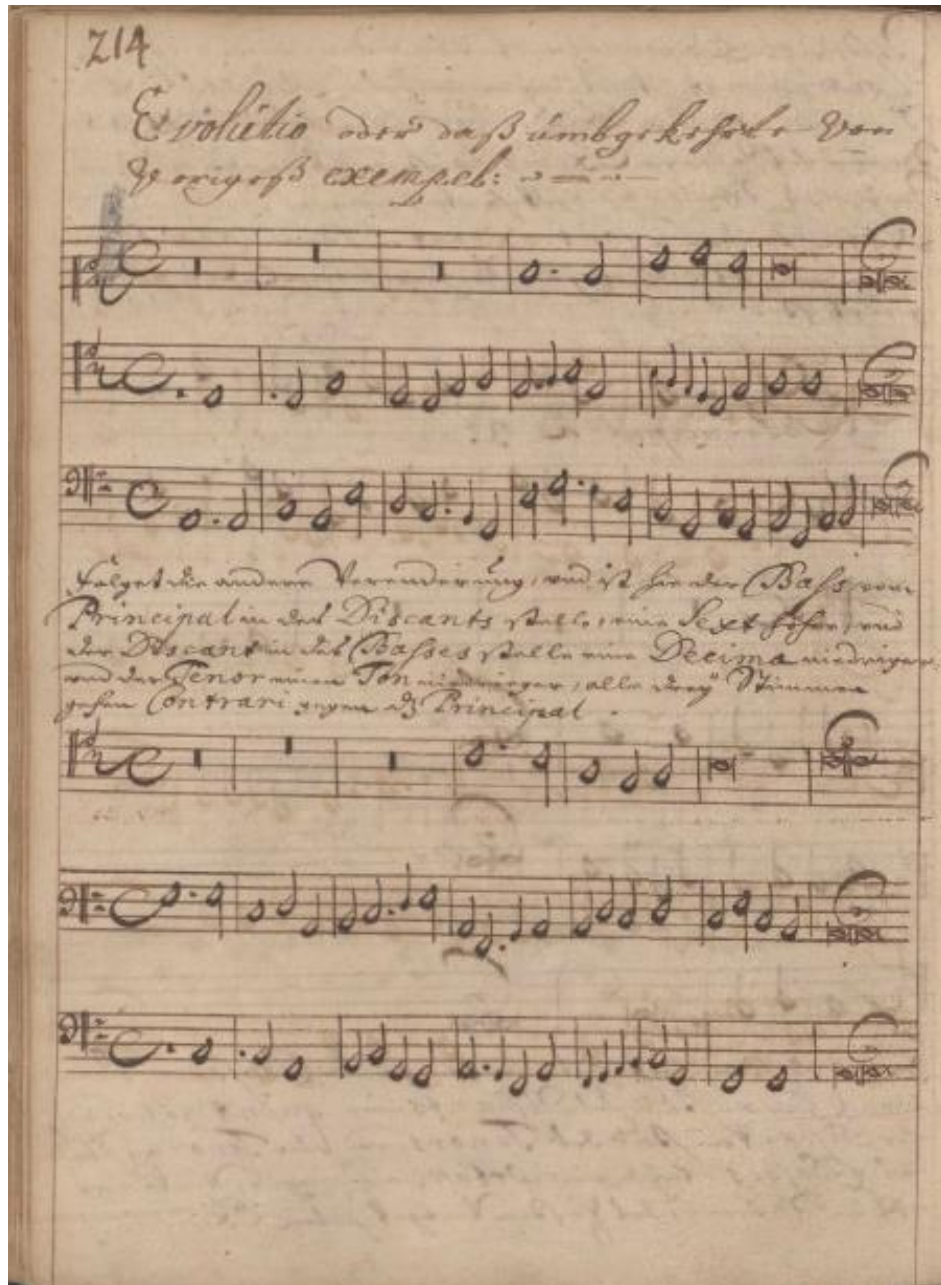 214
Evolutio oder daß umbgekehrte Von
Vorigeß exempel:
Folget die andere Verenderung, und ist hie der Bass vom
Principal in des Discants stelle, eine Sext höher, und
der Discant in des Basses stelle eine Decima niedriger,
und der Tenor einen Ton niedrieger, alle drey Stimmen
gehen Contrari gegen dz Principal.